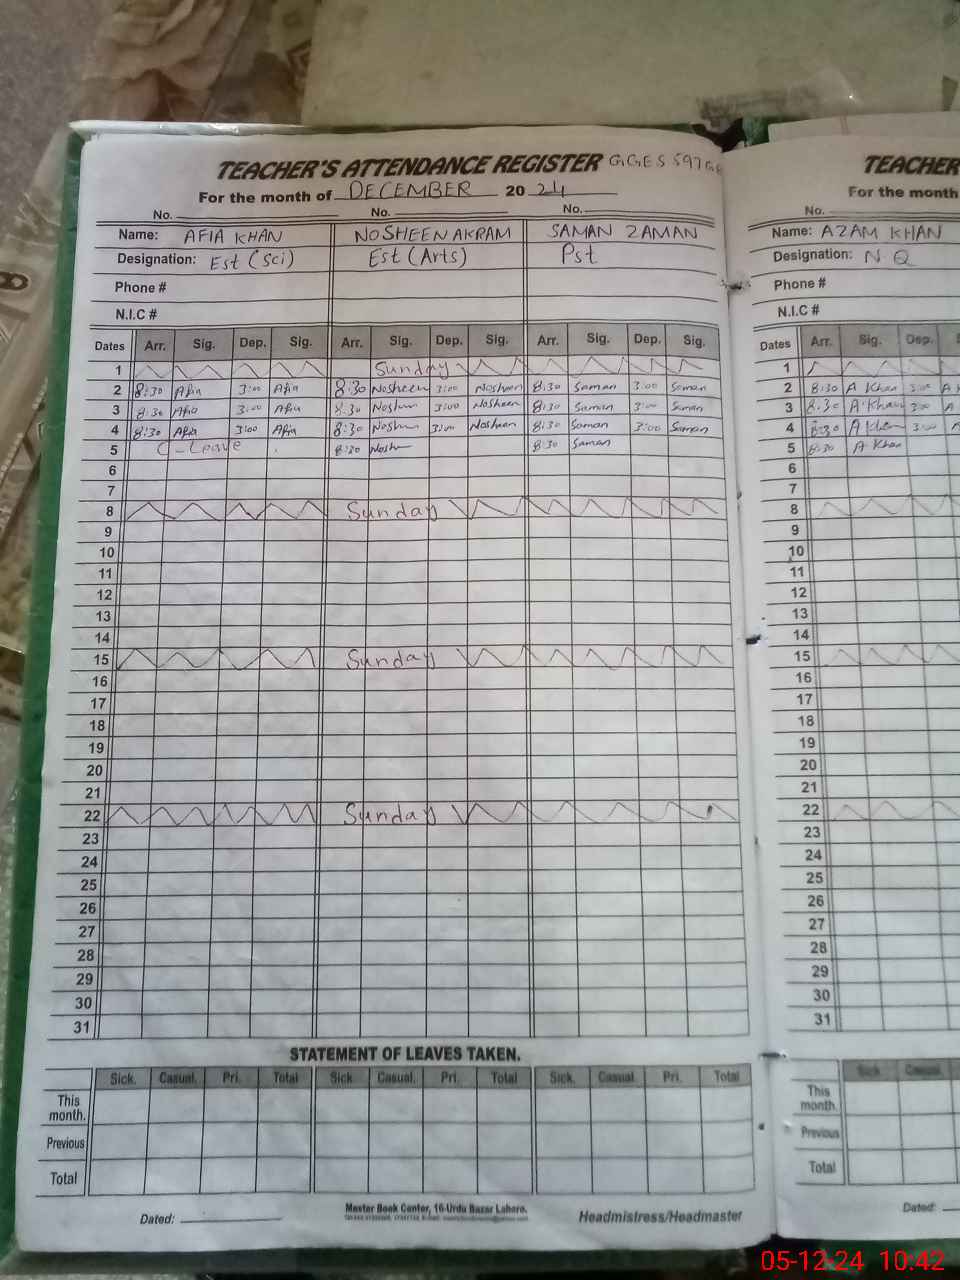 TEACHER'S ATTENDANCE REGISTER GGES 597GB
For the month of DECEMBER 2024
No. No. No.
Name: AFIA KHAN NOSHEEN AKRAM SAMAN ZAMAN
Designation: Est (Sci) Est (Arts) Pst
Phone #
N.I.C #
Dates Arr. Sig. Dep. Sig. Arr. Sig. Dep. Sig. Arr. Sig. Dep. Sig.
1 Sunday
2 8:30 Afia 3:00 Afia 8:30 Nosheen 3:00 Nosheen 8:30 Saman 3:00 Saman
3 8:30 Afia 3:00 Afia 8:30 Nosheen 3:00 Nosheen 8:30 Saman 3:00 Saman
4 8:30 Afia 3:00 Afia 8:30 Nosheen 3:00 Nosheen 8:30 Saman 3:00 Saman
5 C-Leave 8:30 Nosheen 8:30 Saman
6
7
8 Sunday
9
10
11
12
13
14
15 Sunday
16
17
18
19
20
21
22 Sunday
23
24
25
26
27
28
29
30
31
STATEMENT OF LEAVES TAKEN.
Sick. Casual. Pri. Total Sick. Casual. Pri. Total Sick. Casual. Pri. Total
This month.
Previous
Total
Master Book Center, 16-Urdu Bazar Lahore.
Dated: Headmistress/Headmaster
TEACHER
For the month
No.
Name: AZAM KHAN
Designation: N.Q
Phone #
N.I.C #
Dates Arr. Sig. Dep.
1
2 8:30 A Khan 3:00 A
3 8:30 A Khan 3:00 A
4 8:30 A Khan 3:00 A
5 8:30 A Khan
6
7
8
9
10
11
12
13
14
15
16
17
18
19
20
21
22
23
24
25
26
27
28
29
30
31
Sick Casual
This month.
Previous
Total
Dated:
05-12-24 10:42